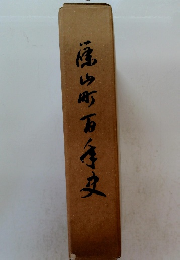 篠山町百年史